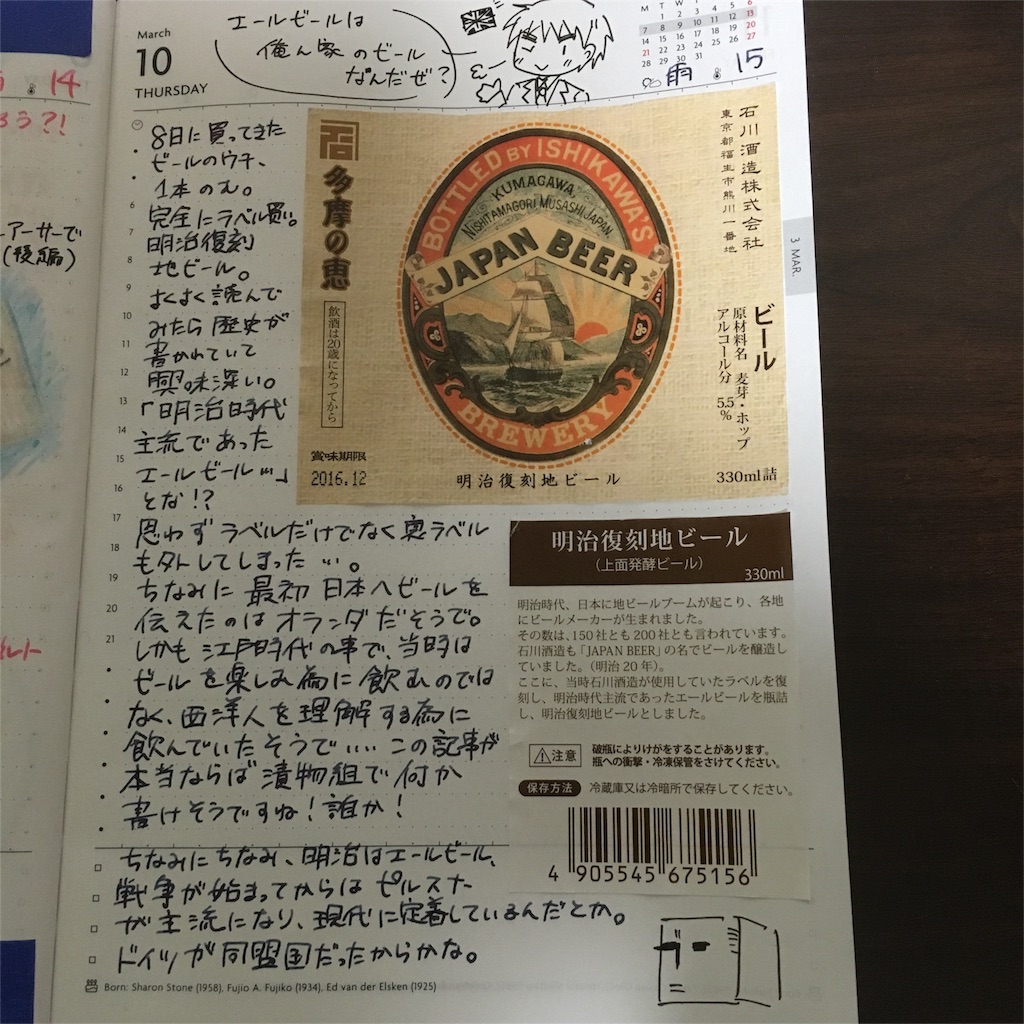 March
10
THURSDAY
エールビールは
俺ん家のビール
なんだぜ?
雨
15
14
ろう?!
アーサーで
(後編)
ルト
8日に買ってきた
ビールのウチ、
1本のむ。
完全にラベル買い。
明治復刻
地ビール。
よくよく読んで
みたら歴史が
書かれていて
興味深い。
「明治時代
主流であった
エールビール…」
とな!?
思わずラベルだけでなく裏ラベル
も外してしまった…。
ちなみに最初日本へビールを
伝えたのはオランダだそうで。
しかも江戸時代の事で、当時は
ビールを楽しみ為に飲むのでは
なく、西洋人を理解する為に
飲んでいたそうで‥‥この記事が
本当ならば漬物組で何か
書けそうですね!誰か!
ちなみにちなみ、明治はエールビール、
戦争が始まってからはピルスナー
が主流になり、現代に定着しているんだとか。
ドイツが同盟国だったからかな。
Born: Sharon Stone (1958), Fujio A. Fujiko (1934), Ed van der Elsken (1925)
3 MAR.
多摩の恵
飲酒は20歳になってから
賞味期限
2016.12
BOTTLED BY ISHIKAWA'S
KUMAGAWA,
NISHITAMAGORI MUSASHI JAPAN
JAPAN BEER
BREWERY
明治復刻地ビール
石川酒造株式会社
東京都福生市熊川一番地
ビール
原材料名 麦芽・ホップ
アルコール分 5.5%
330ml詰
明治復刻地ビール
(上面発酵ビール)
330ml
明治時代、日本に地ビールブームが起こり、各地
にビールメーカーが生まれました。
その数は、150社とも200社とも言われています。
石川酒造も「JAPAN BEER」の名でビールを醸造し
ていました。(明治20年)。
ここに、当時石川酒造が使用していたラベルを復
刻し、明治時代主流であったエールビールを瓶詰
し、明治復刻地ビールとしました。
注意 破瓶によりけがをすることがあります。
瓶への衝撃・冷凍保管をさけてください。
保存方法 冷蔵庫又は冷暗所で保存してください。
4 905545 675156